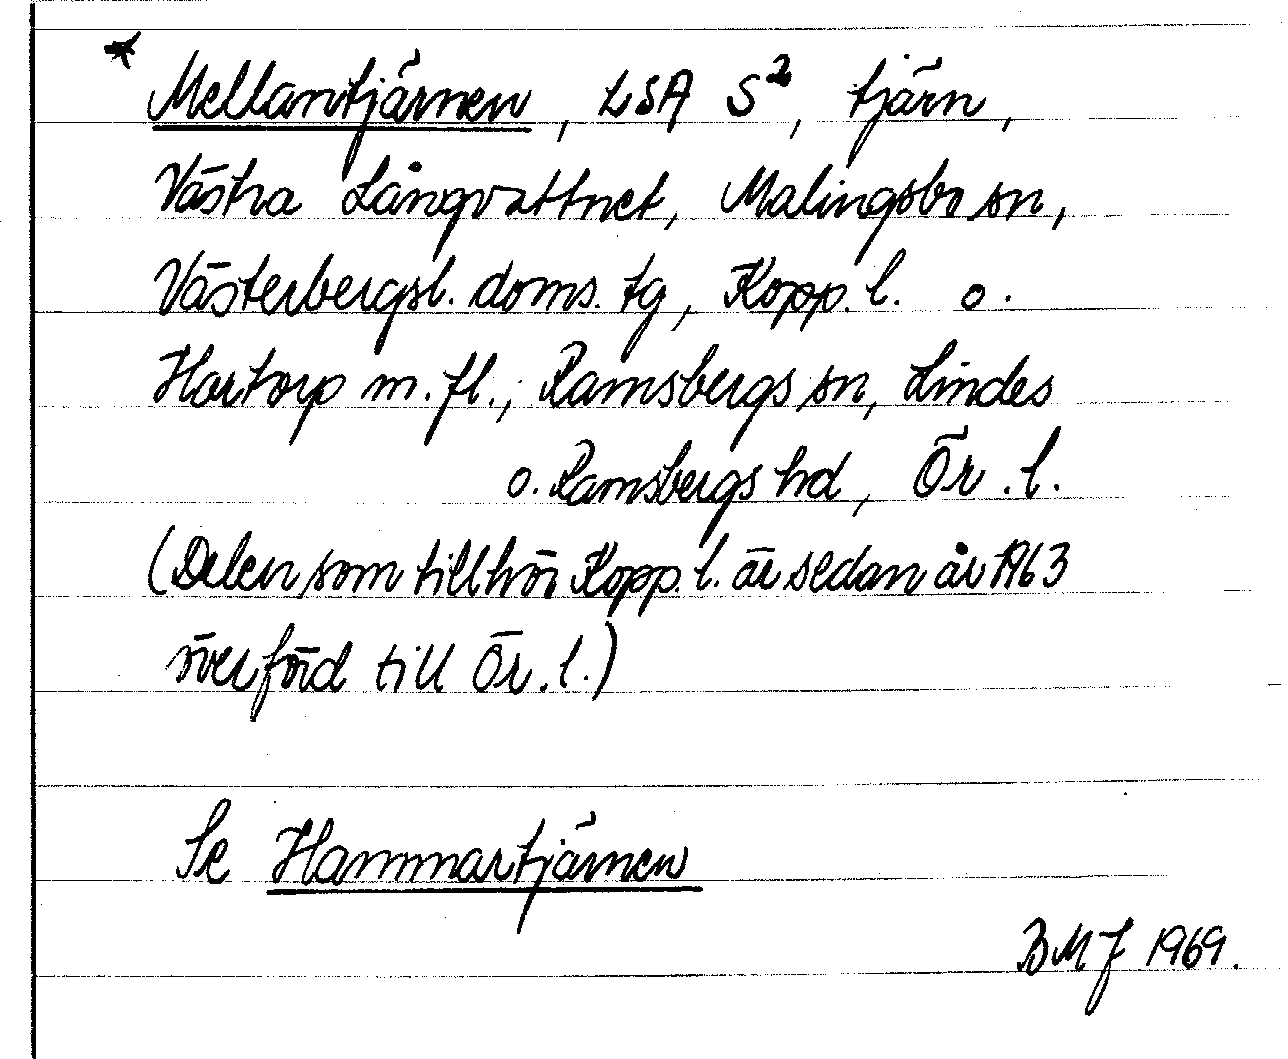 * Mellantjärnen, LSA S², tjärn,
Västra Långvattnet, Malingsbo sn,
Västerbergsl. doms. tg, Kopp. l. o.
Hartorp m. fl., Ramsbergs sn, Lindes
o. Ramsbergs hd, Ör. l.
(Delen som tillhör Kopp. l. är sedan år 1963
överförd till Ör. l.)
Se Hammartjärnen
BMJ 1969.